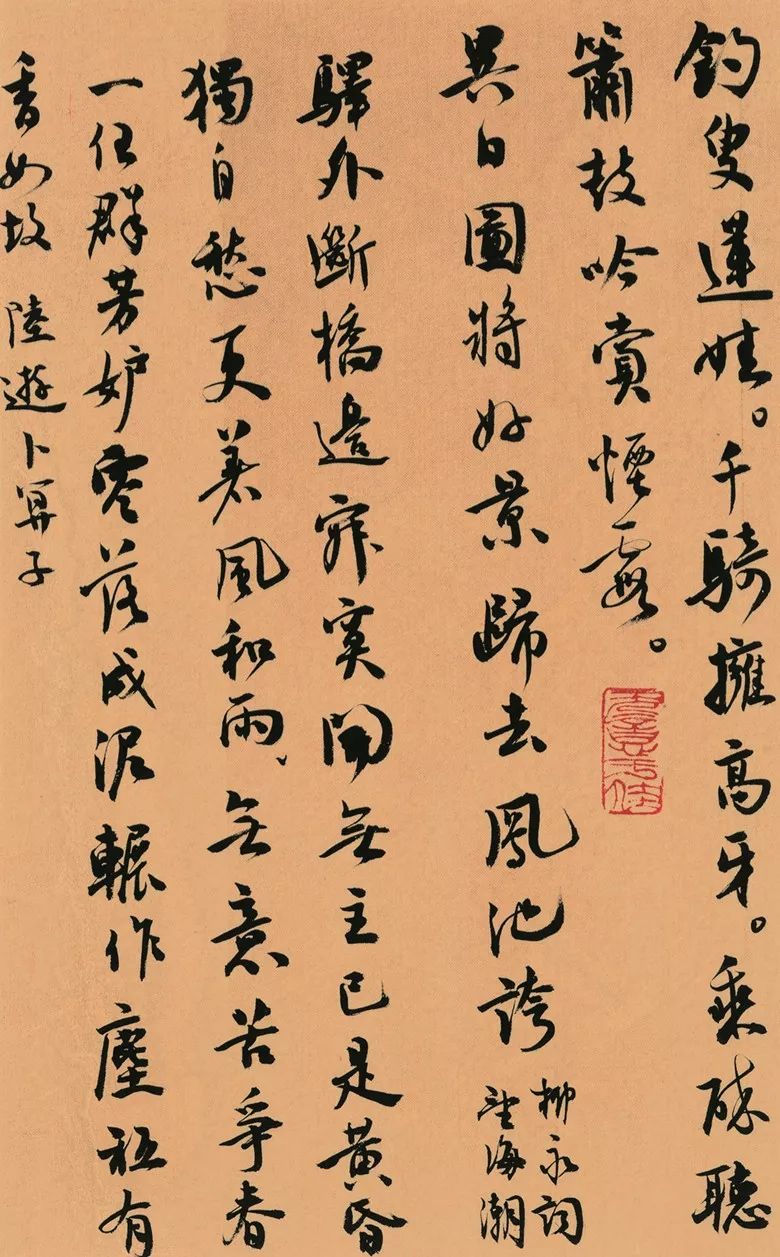 釣叟蓮娃。千騎擁高牙。乘醉聽
簫鼓吟賞煙霞。
異日圖將好景歸去鳳池誇
柳永詞
望海潮
驛外斷橋邊寂寞開無主已是黃昏
獨自愁更著風和雨、無意苦爭春
一任群芳妒零落成泥輾作塵秖有
香如故 陸遊卜算子